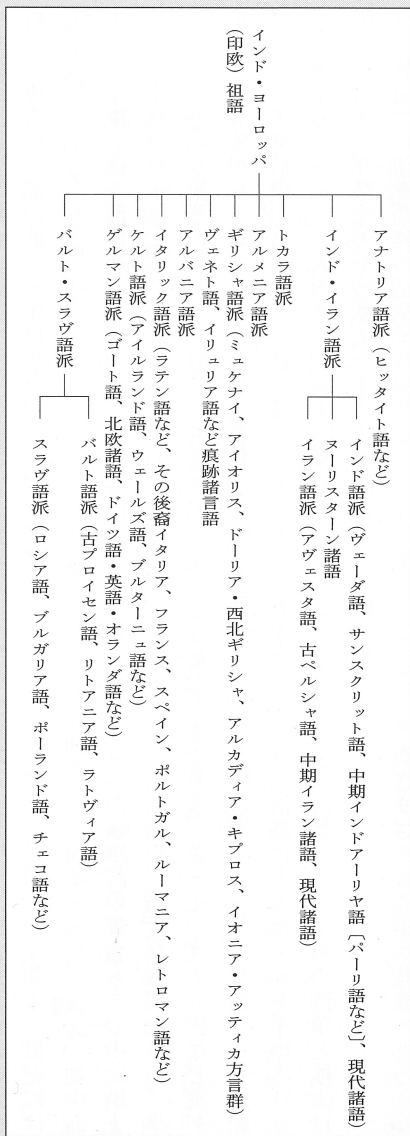 インド・ヨーロッパ
（印欧）祖語
アナトリア語派（ヒッタイト語など）
インド・イラン語派
インド語派（ヴェーダ語、サンスクリット語、中期インドアーリヤ語〔パーリ語など〕、現代諸語）
ヌーリスターン諸語
イラン語派（アヴェスタ語、古ペルシャ語、中期イラン諸語、現代諸語）
トカラ語派
アルメニア語派
ギリシャ語派（ミュケナイ、アイオリス、ドーリア・西北ギリシャ、アルカディア・キプロス、イオニア・アッティカ方言群）
ヴェネト語、イリュリア語など痕跡諸言語
アルバニア語派
イタリック語派（ラテン語など、その後裔イタリア、フランス、スペイン、ポルトガル、ルーマニア、レトロマン語など）
ケルト語派（アイルランド語、ウェールズ語、ブルターニュ語など）
ゲルマン語派（ゴート語、北欧諸語、ドイツ語・英語・オランダ語など）
バルト・スラヴ語派
バルト語派（古プロイセン語、リトアニア語、ラトヴィア語）
スラヴ語派（ロシア語、ブルガリア語、ポーランド語、チェコ語など）